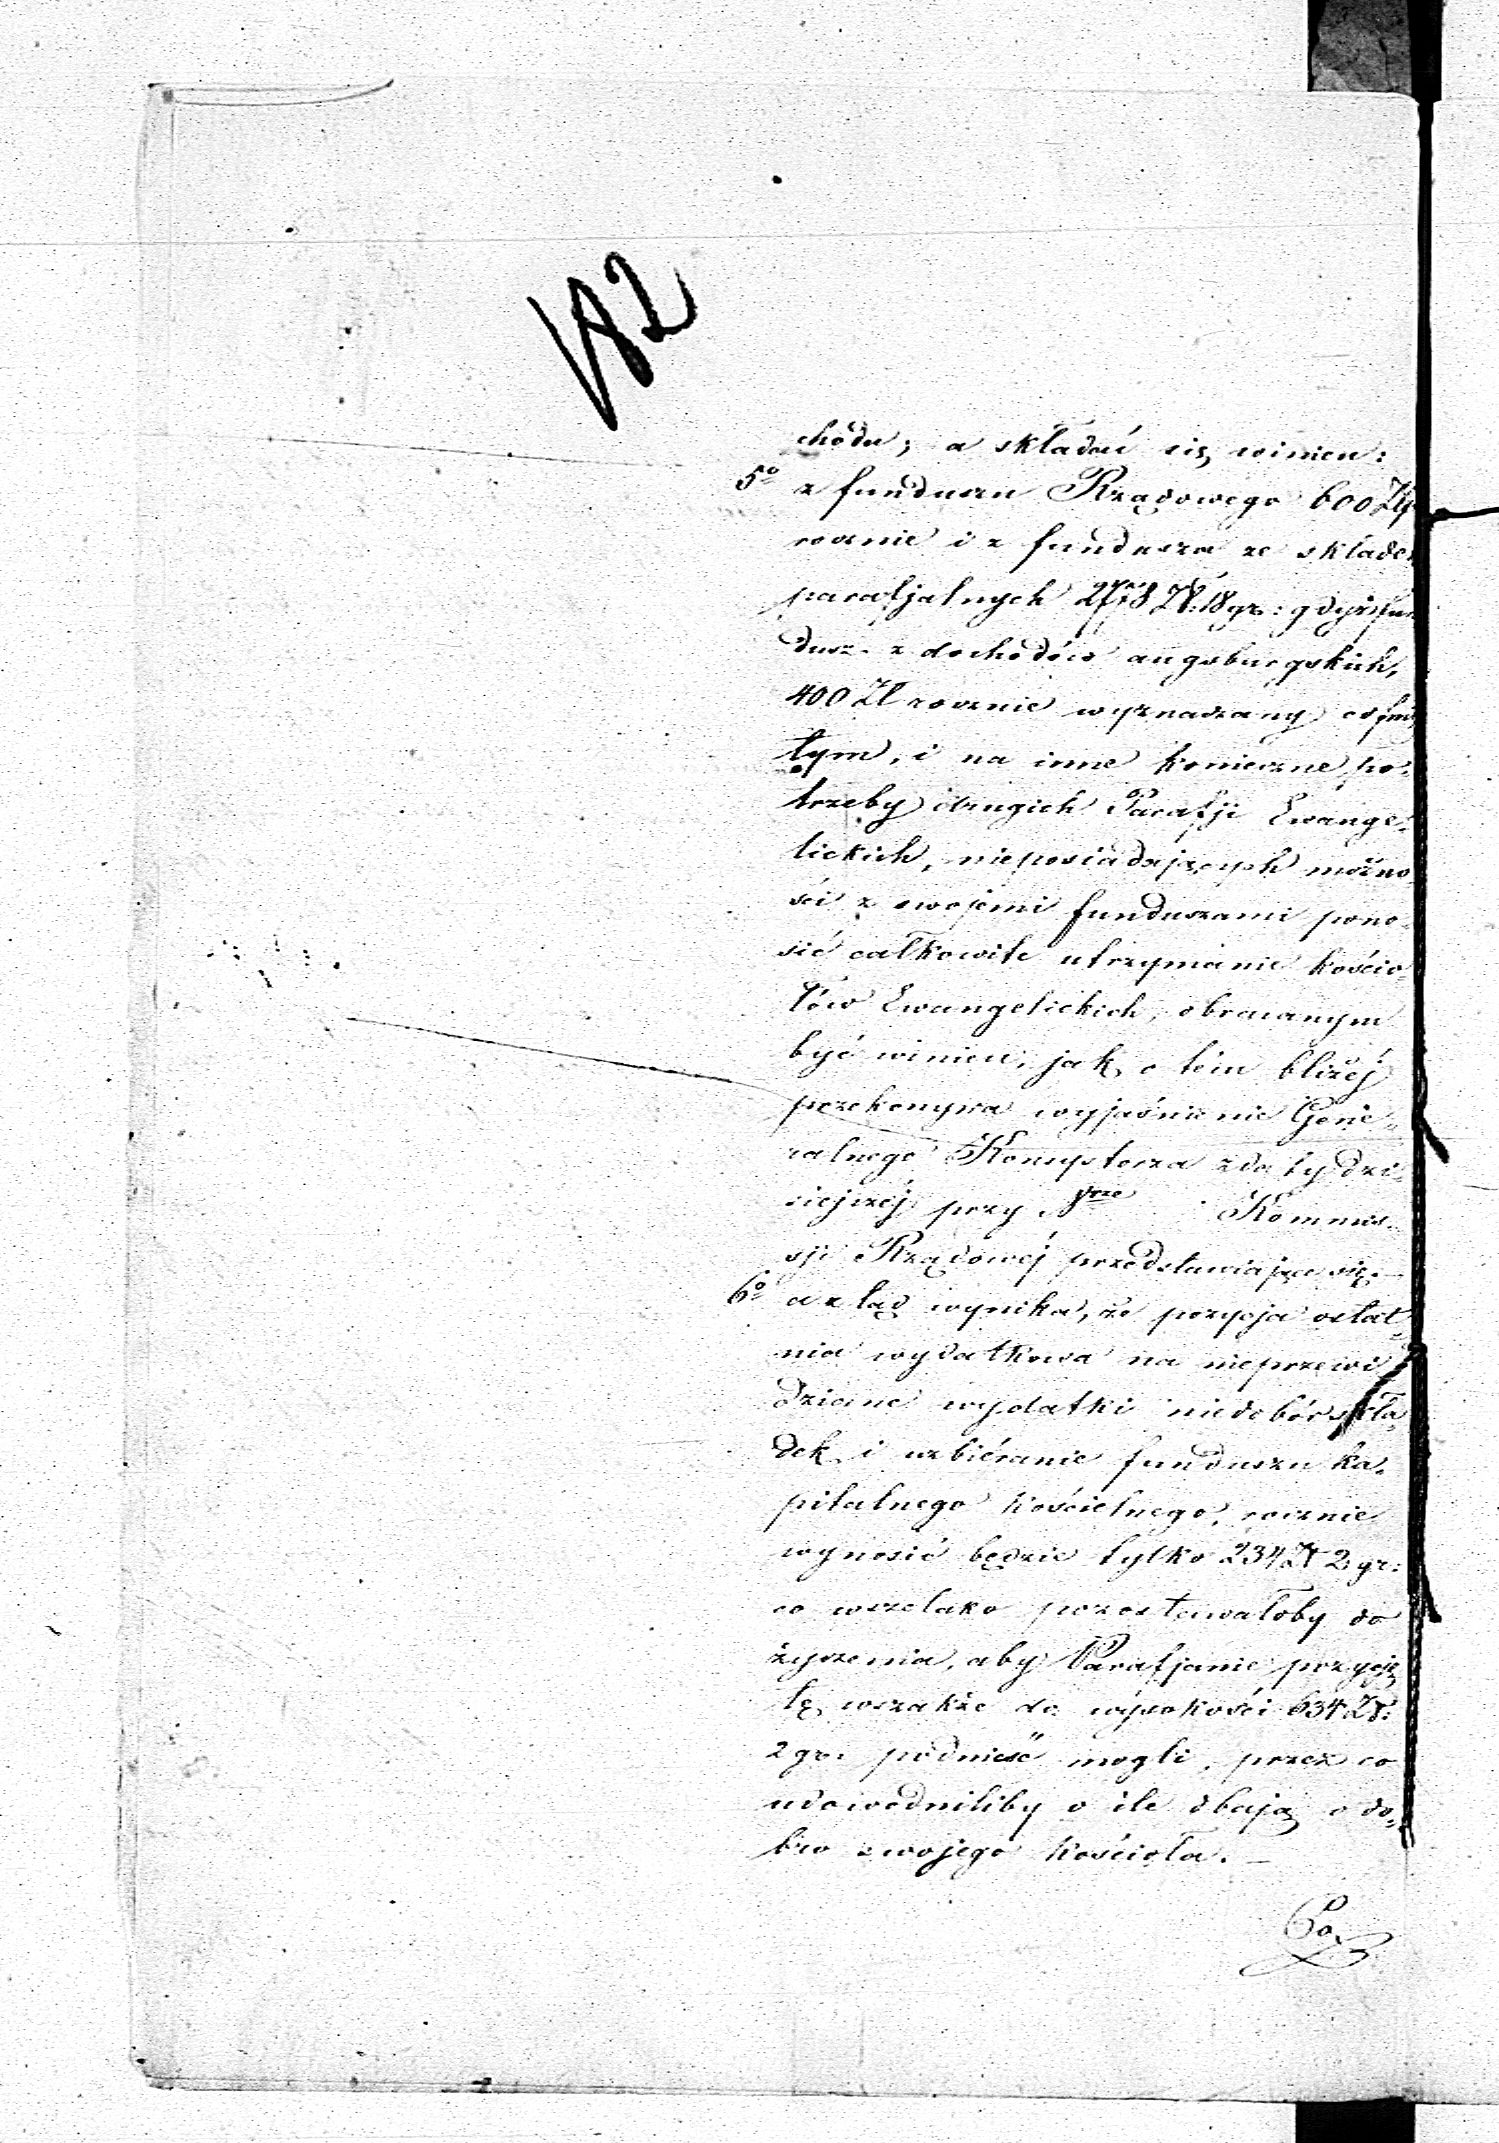 182
chodu; a składać się winien:
5º z funduszu Rządowego 600 Złp
rocznie i z funduszu ze składek
parafjalnych Zł: 18 gr: gdyż fun
dusz z dochodów augsburgskich,
400 Zł rocznie wyznaczany cofnię
tym, i na inne konieczne po-
trzeby drugich Parafji Ewange-
lickich, nieposiadających możno-
ści z swojemi funduszami pono-
sić całkowite utrzymanie kościo-
łów Ewangelickich, obracanym
być winien, jak o tém bliżéj
przekonywa wyjaśnienie Gene-
ralnego Konsystorza z daty dzi-
siejszéj przy Nrze Kommis-
sji Rządowéj przedstawiające się.—
6º a ztąd wynika, że pozycja ostat-
nia wydatkowa na nieprzewi
dziane wydatki niedobór skła-
dek i uzbiéranie funduszu ka-
pitalnego kościelnego, rocznie
wynosić będzie tylko 234 Zł 2 gr:
co wszelako pozostawałoby do
życzenia, aby Parafjanie pozycję
tę wszakże do wysokości 634 Zł:
2 gr: podnieść mogli, przez co
udowodniliby o ile dbają o do-
bro swojego kościoła.—
Po